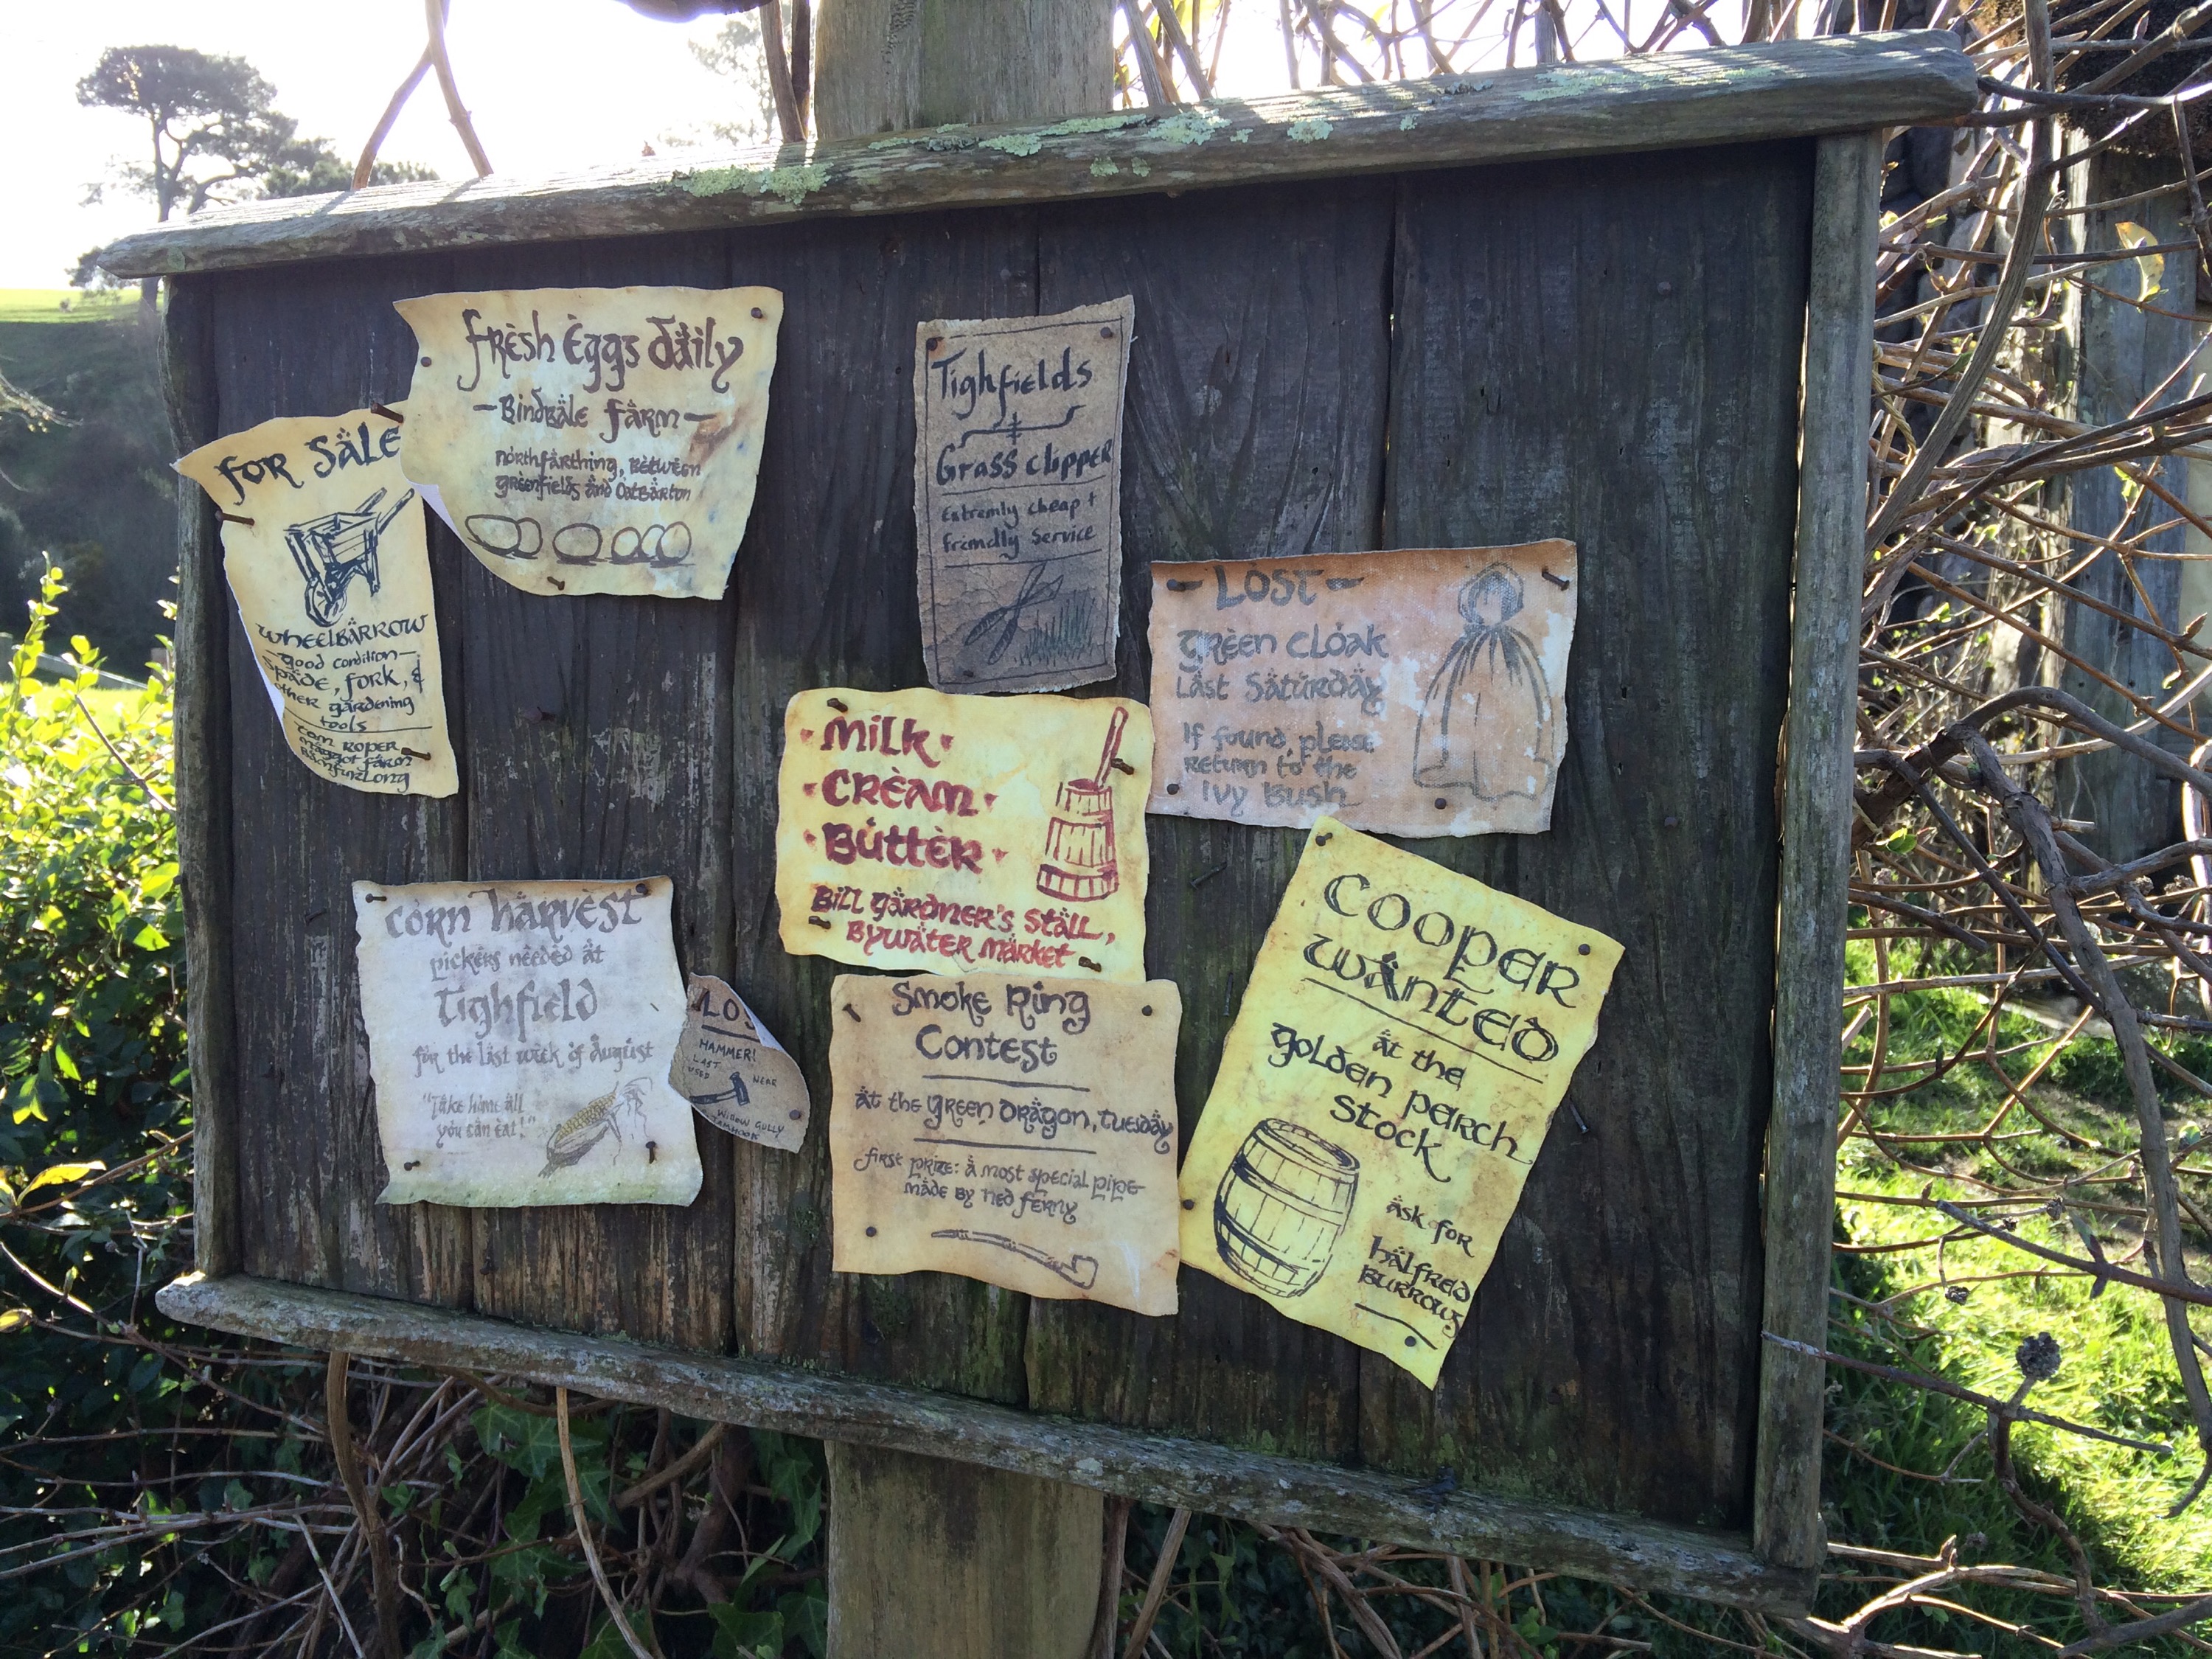 FOR SALE
WHEELBARROW
good condition
Spade, fork, &
other gardening
tools
Tom Roper
Maggot Farm
Bamfurlong
Fresh Eggs Daily
- Bindbale Farm -
Northfarthing, Between
Greenfields and Oatbarton
Tighfields
Grass Clipper
Extremly cheap +
friendly Service
- LOST -
Green Cloak
Last Saturday
If found, please
return to the
Ivy Bush
Milk
Cream
Butter
Bill Gardner's Stall,
Bywater Market
Corn Harvest
pickers needed at
Tighfield
for the last week of August
"Take home all
you can eat!"
HAMMER!
LAST
USED NEAR
WIDOW GULLY
Smoke Ring
Contest
at the Green Dragon, Tuesday
First prize: a most special pipe
made by Ned Ferny
Cooper
Wanted
at the
Golden Perch
Stock
ask for
Halfred
Burrows